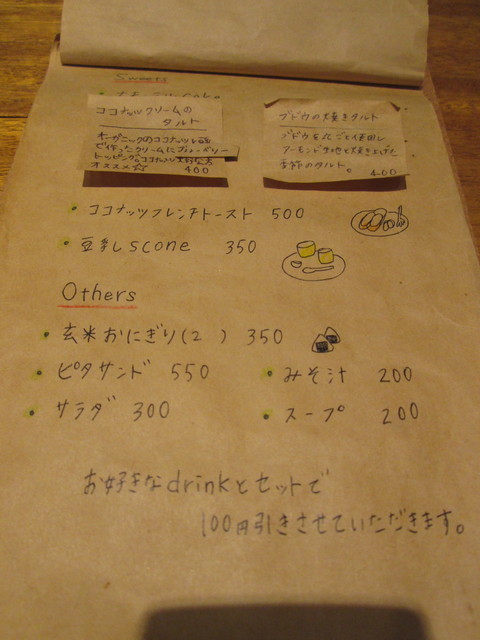 Sweets
ココナッツクリームの
タルト
オーガニックのココナッツを
で作ったクリームにブルーベリー
トッピング。ココナッツ大好きな方
オススメ☆ 400
ブドウの焼きタルト
ブドウを丸ごと使用し
アーモンド生地と焼き上げた
季節のタルト。 400
ココナッツフレンチトースト 500
豆乳scone 350
Others
玄米おにぎり(2 ) 350
ピタサンド 550
みそ汁 200
サラダ 300
スープ 200
お好きなdrinkとセットで
100円引きさせていただきます。